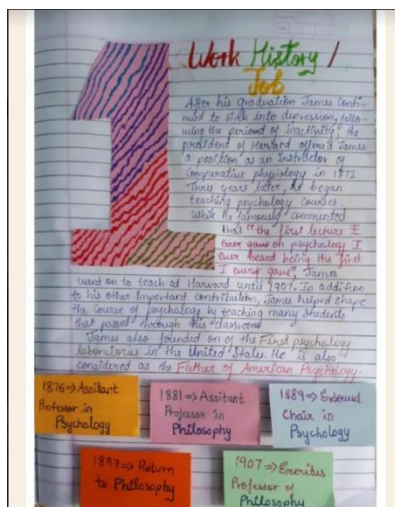 Work History /
Job
After his graduation James conti-
nued to sink into depression, follo-
wing the period of inactivity, the
president of Harvard offered James
a position as an instructor of
Comparative physiology in 1872.
Three years later, he began
teaching psychology courses.
While he famously commented
that "the first lecture I
ever gave on psychology I
ever heard being the first
I every gave", James
went on to teach at Harward until 1907. In addition
to his other important contribution, James helped shape
the course of psychology by teaching many students
that passed through his classroom
James also founded on of the First psychology
laboratories in the United States. He is also
considered as the Father of American Psychology.
1876 => Assitant
Professor in
Psychology
1881 => Assitant
Professor in
Philosophy
1889 => Endowed
Chair in
Psychology
1897 => Return
to Philosophy
1907 => Emeritus
Professor of
Philosophy